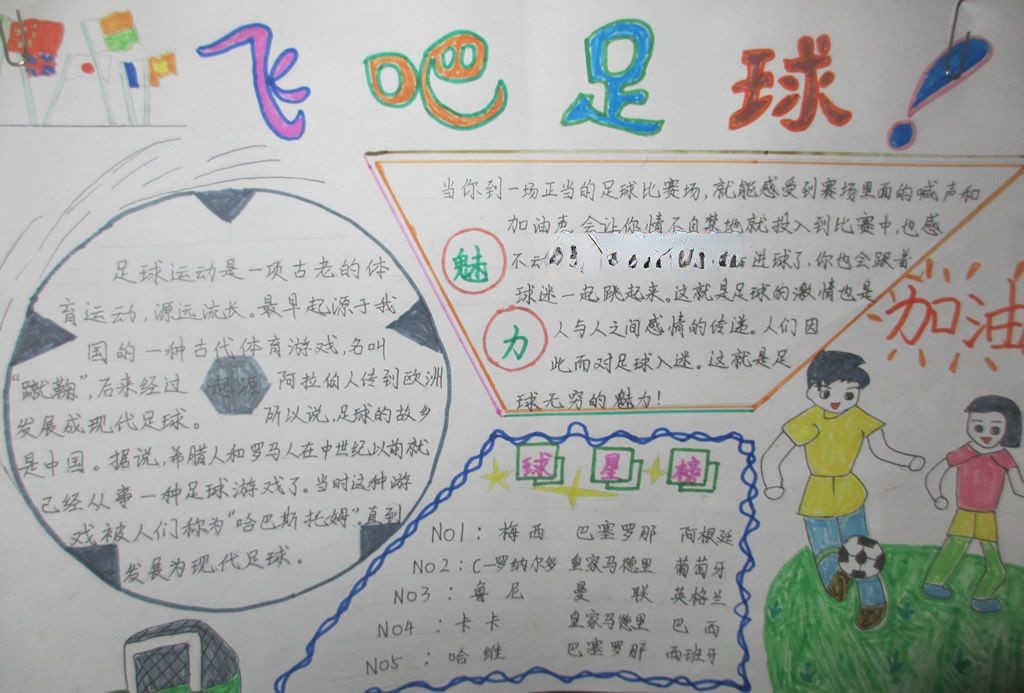 飞吧足球!
足球运动是一项古老的体
育运动,源远流长。最早起源于我
国的一种古代体育游戏,名叫
“蹴鞠”,后来经过 阿拉伯人传到欧洲
起源
发展成现代足球。 所以说,足球的故乡
是中国。据说,希腊人和罗马人在中世纪以前就
已经从事一种足球游戏了。当时这种游
戏被人们称为“哈巴斯托姆”.直到
发展为现代足球。
魅力
当你到一场正当的足球比赛场,就能感受到赛场里面的喊声和
加油声,会让你情不自禁地就投入到比赛中,也感
不云 进球了,你也会跟着
球迷一起跳起来。这就是足球的激情也是
人与人之间感情的传递。人们因
此而对足球入迷。这就是足
球无穷的魅力!
加油
球星榜
NO1:梅西 巴塞罗那 阿根廷
NO2:C—罗纳尔多 皇家马德里 葡萄牙
NO3:鲁尼 曼联 英格兰
NO4:卡卡 皇家马德里 巴西
NO5:哈维 巴塞罗那 西班牙